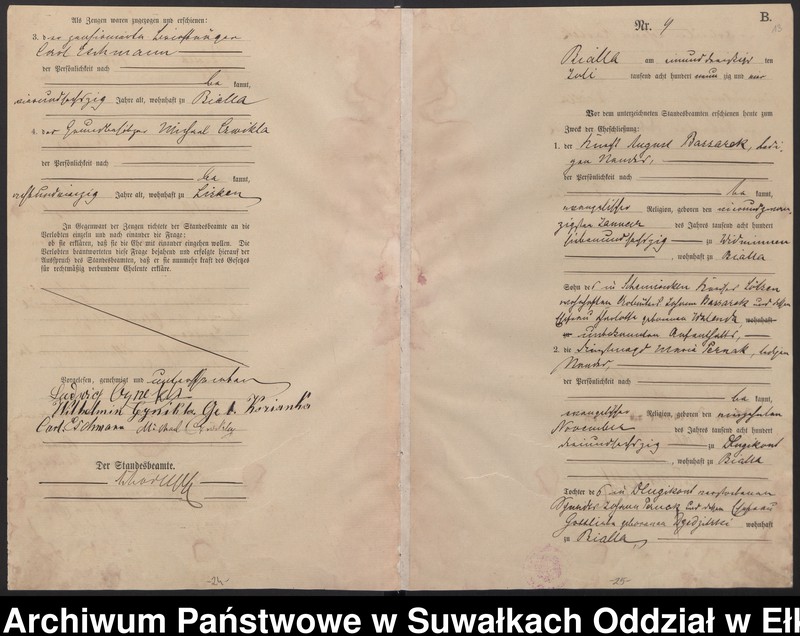 Als Zeugen waren zugezogen und erschienen:
3. der pensionierte
Carl Eschmann
der Persönlichkeit nach
be kannt,
vierundsechszig Jahre alt, wohnhaft zu Bialla
4. der Grundbesitzer Michael Czwikla
der Persönlichkeit nach
be kannt,
Jahre alt, wohnhaft zu Lisken
In Gegenwart der Zeugen richtete der Standesbeamte an die
Verlobten einzeln und nach einander die Frage:
ob sie erklären, daß sie die Ehe mit einander eingehen wollen. Die
Verlobten beantworteten diese Frage bejahend und erfolgte hierauf der
Ausspruch des Standesbeamten, daß er sie nunmehr kraft des Gesetzes
für rechtmäßig verbundene Eheleute erkläre.
Vorgelesen, genehmigt und unterschrieben
Ludwig
Wilhelmin Geb. Kozianka
Carl Eschmann Michael Czwikla
Der Standesbeamte.
-24-
B.
Nr. 9
13
Bialla am einunddreißig ten
Juli tausend acht hundert neun zig und vier
Vor dem unterzeichneten Standesbeamten erschienen heute zum
Zweck der Eheschließung:
1. der Knecht August Bassarek, ledi-
gen Standes,
der Persönlichkeit nach
be kannt,
evangelischer Religion, geboren den vierundzwan-
zigsten Januar des Jahres tausend acht hundert
siebenundsechszig zu Widminnen
, wohnhaft zu Bialla
Sohn des in Kreises Lötzen
verstorbenen Arbeiters Johann Bassarek und dessen
Ehefrau Charlotte geborenen wohnhaft
zu unbekannten Aufenthalts,
2. die Dienstmagd Marie Pernak, ledigen
Standes,
der Persönlichkeit nach
be kannt,
evangelischer Religion, geboren den
November des Jahres tausend acht hundert
dreiundsechszig zu Dlugikont
, wohnhaft zu Bialla
Tochter des in Dlugikont verstorbenen
Johann und dessen Ehefrau
Gottliebe geborenen wohnhaft
zu Bialla,
-25-
Archiwum Państwowe w Suwałkach Oddział w Ełk